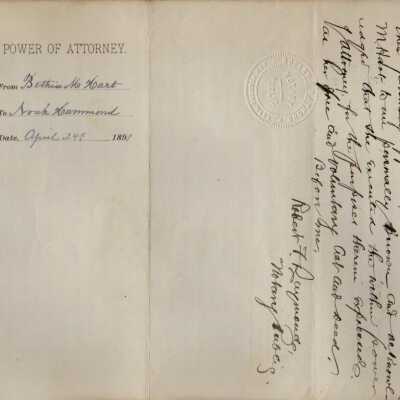 POWER OF ATTORNEY.
From Bethia M. Hart
To Noah Hammond
Date, April 24th 189
M Hart to me personally known and acknowl-
edged that she executed the within power
of Attorney for the purposes therein expressed
as her free and voluntary act and deed,
Before me,
Robert T. Raymond,
Notary Public.